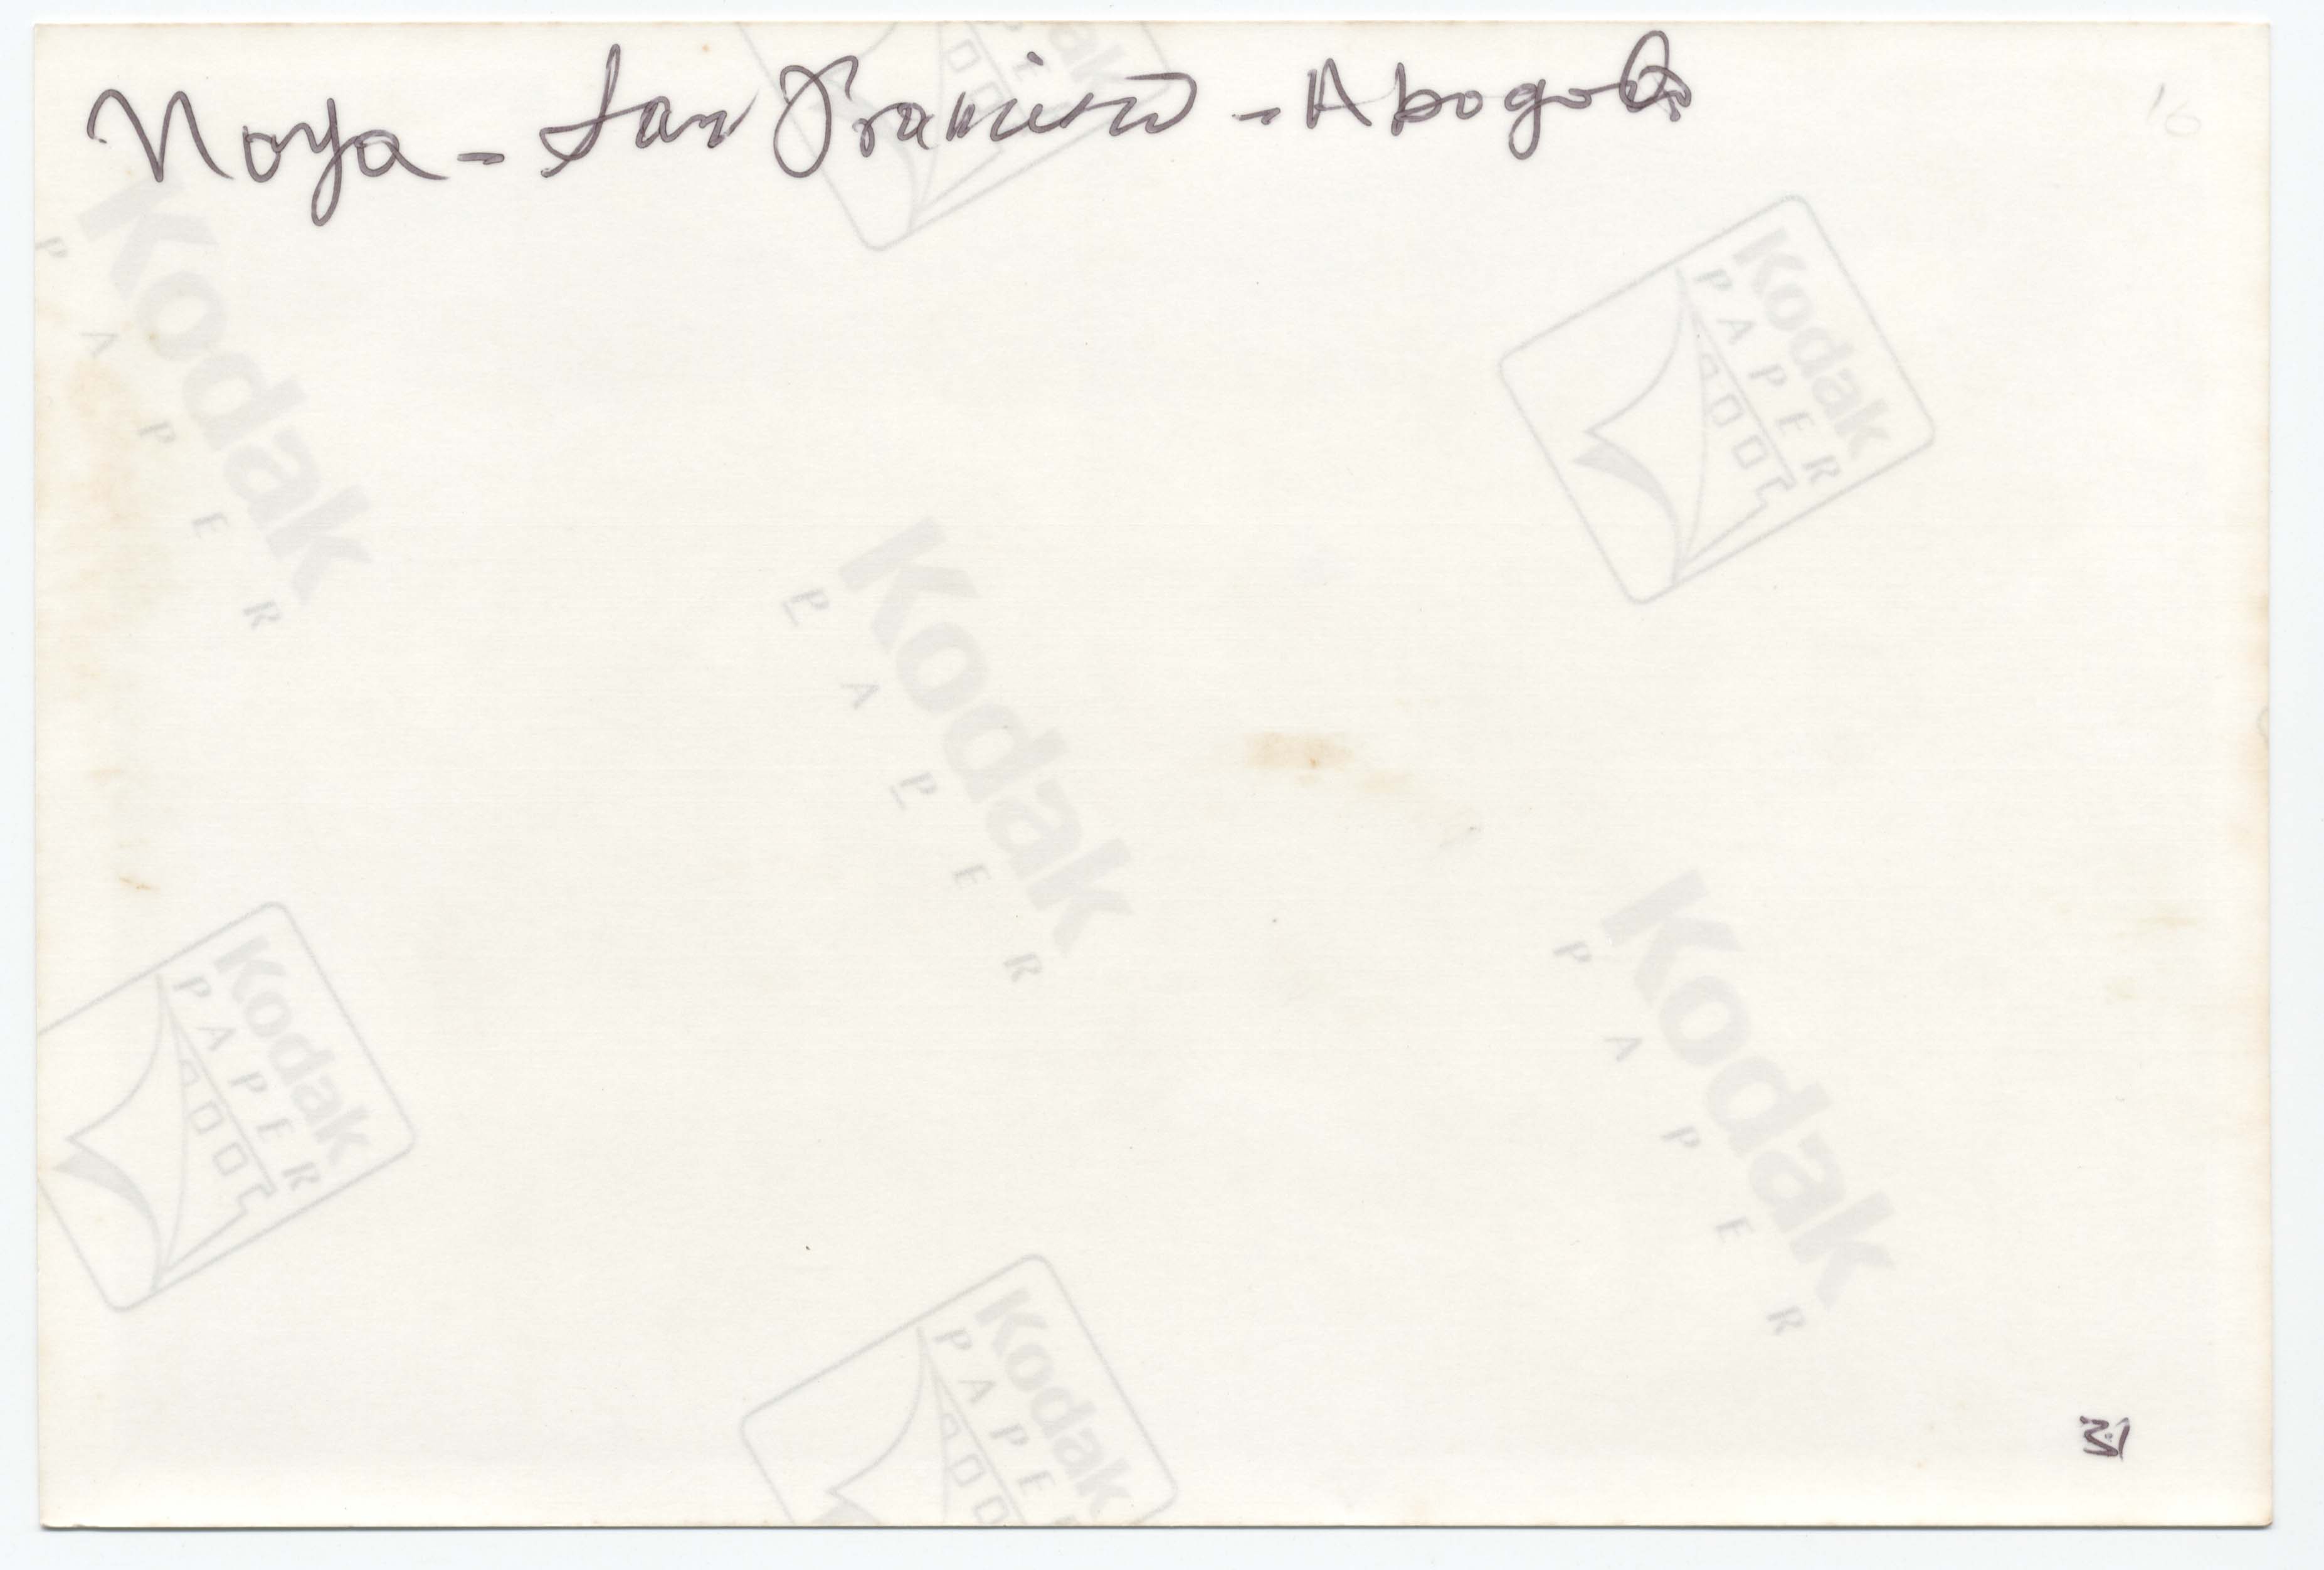 Noya - San Francisco - Abogado
10
Kodak
PAPER
Kodak
PAPER
Kodak
PAPER
Kodak
PAPER
Kodak
PAPER
Kodak
PAPER
31